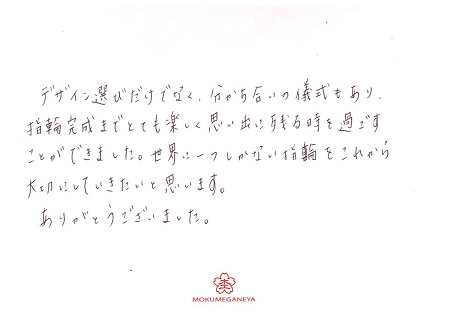 デザイン選びだけでなく、分かち合いの儀式もあり、
指輪完成までとても楽しく思い出に残る時を過ごす
ことができました。世界に一つしかない指輪をこれから
大切にしていきたいと思います。
ありがとうございました。
MOKUMEGANEYA